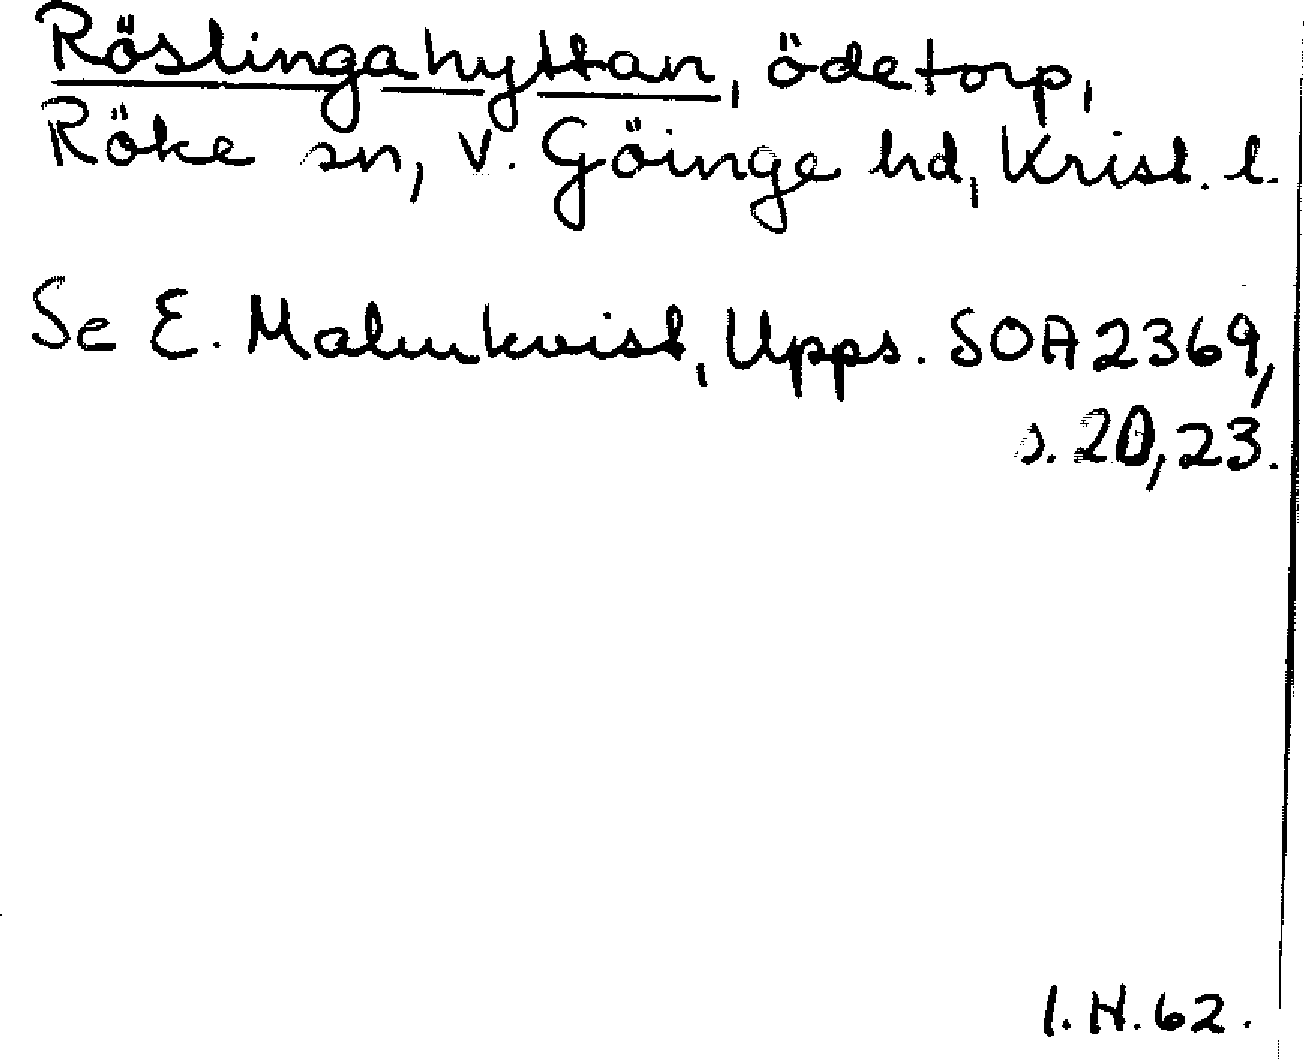 Röslingahyttan, ödetorp,
Röke sn, V. Göinge hd, Krist. l.
Se E. Malmkvist, Upps. SOA 2369,
s. 20, 23.
I. H. 62.